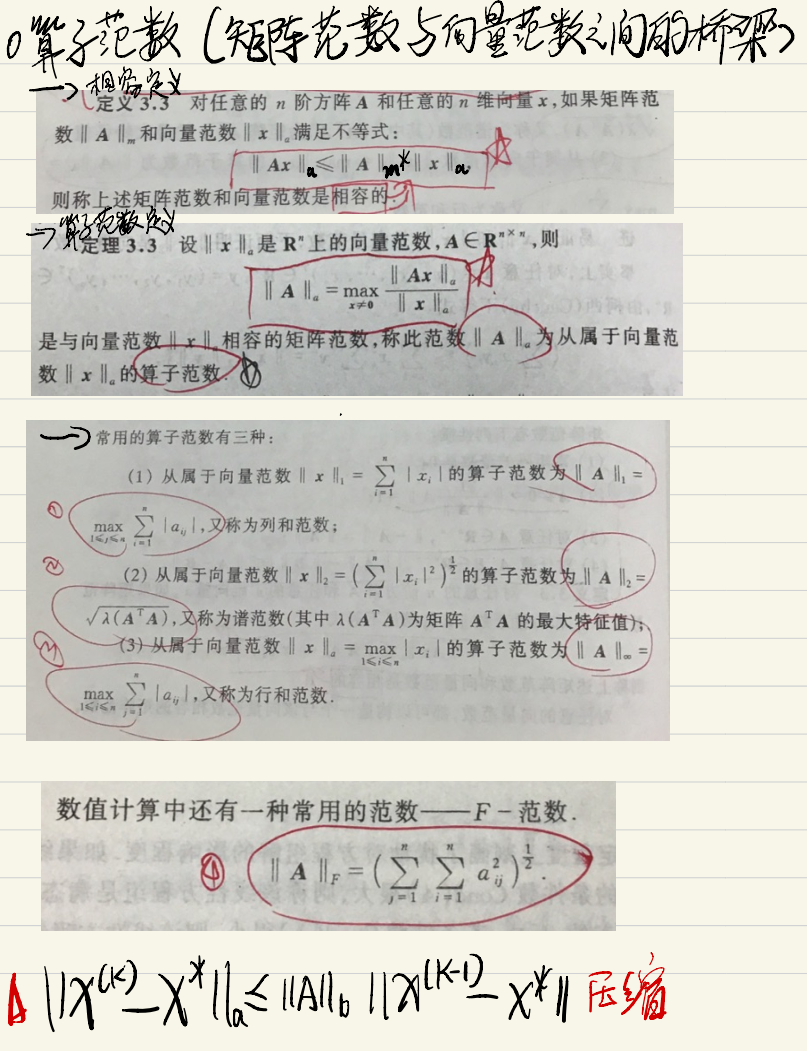 ○算子范数(矩阵范数与向量范数之间的桥梁)
→相容定义
定义 3.3 对任意的 n 阶方阵 A 和任意的 n 维向量 x,如果矩阵范
数‖A‖ₘ和向量范数‖x‖ₐ满足不等式:
‖Ax‖ₐ≤‖A‖ₘ*‖x‖ₐ
则称上述矩阵范数和向量范数是相容的.
→算子范数定义
定理 3.3 设‖x‖ₐ是 Rⁿ上的向量范数,A∈Rⁿˣⁿ,则
‖A‖ₐ=max_{x≠0} ‖Ax‖ₐ/‖x‖ₐ
是与向量范数‖x‖ₐ相容的矩阵范数,称此范数‖A‖ₐ为从属于向量范
数‖x‖ₐ的算子范数.
→常用的算子范数有三种:
(1) 从属于向量范数‖x‖₁=∑_{i=1}^{n}|xᵢ|的算子范数为‖A‖₁=
① max_{1≤j≤n}∑_{i=1}^{n}|aᵢⱼ|,又称为列和范数;
(2) 从属于向量范数‖x‖₂=(∑_{i=1}^{n}|xᵢ|²)^{1/2}的算子范数为‖A‖₂=
② √λ(AᵀA),又称为谱范数(其中 λ(AᵀA)为矩阵 AᵀA 的最大特征值);
(3) 从属于向量范数‖x‖ₐ=max_{1≤i≤n}|xᵢ|的算子范数为‖A‖∞=
③ max_{1≤i≤n}∑_{j=1}^{n}|aᵢⱼ|,又称为行和范数.
数值计算中还有一种常用的范数——F-范数.
④ ‖A‖_F=(∑_{j=1}^{n}∑_{i=1}^{n}a²ᵢⱼ)^{1/2}.
△ ‖X^{(K)}-X*‖ₐ≤‖A‖_b‖X^{(K-1)}-X*‖ 压缩